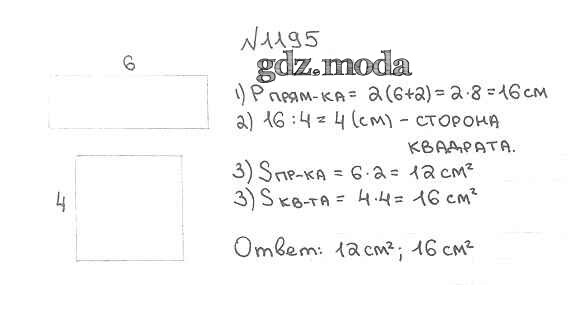 N1195
gdz.moda
6
1) Pпрям-ка = 2(6+2) = 2·8 = 16 см
2) 16 : 4 = 4 (см) – сторона
квадрата.
3) Sпр-ка = 6·2 = 12 см²
4
3) Sкв-та = 4·4 = 16 см²
Ответ: 12 см²; 16 см²